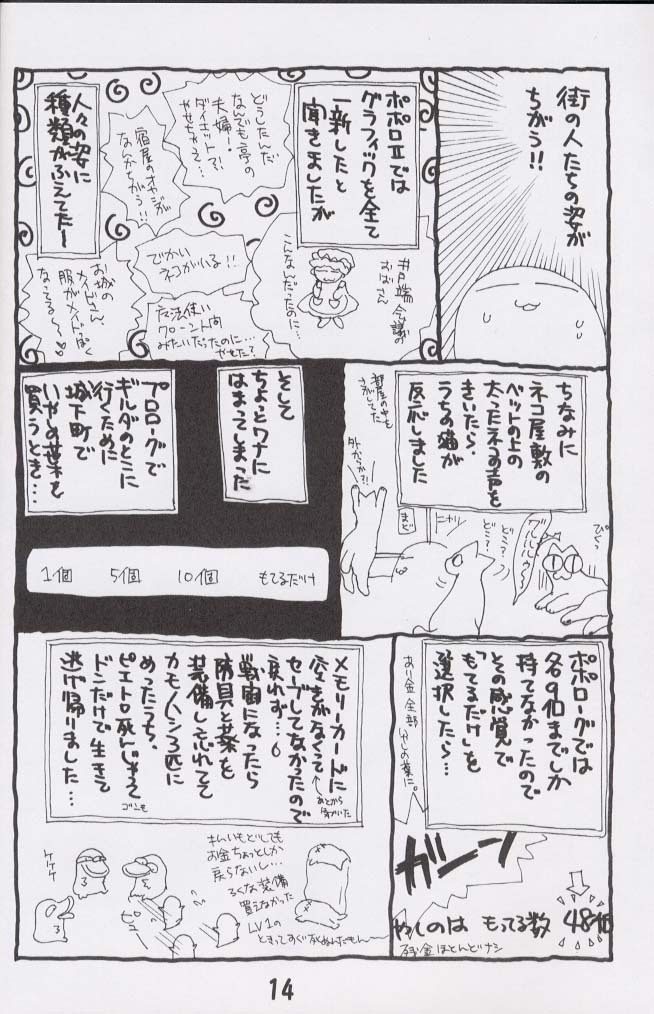 街の人たちの姿が
ちがう!!
ポポロⅡでは
グラフィックを全て
一新したと
聞きましたが
井戸端会議の
おばさん
こんなんだったのに…
どうしたんだ
なんでも亭の
夫婦!
ダイエット?
やせちゃって…
宿屋のオヤジが
なんかちがう!!
でかい
ネコがいる!!
みたいだったのに…
やせた?
人々の姿に
種類がふえてた〜
お城の
メイドさん、
服がメイドっぽく
なってる〜
ちなみに
ネコ屋敷の
ベットの上の
太ったネコの声を
きいたら、
うちの猫が
反応しました
部屋の中も
さがしてた
外かっ?!
まど
ニャッ
どこ?
どこ?
ゴルルルゥ〜
ぴくっ
そして
ちょっとワナに
はまってしまった
プロローグで
ギルダのとこに
行くために
城下町で
いやしの葉を
買うとき…
1個 5個 10個 もてるだけ
ポポローグでは
各9個までしか
持てなかったので
その感覚で
「もてるだけ」を
選択したら…
あり金全部いやしの葉に。
ガーン
やしのは もってる数 48個
残金ほとんどナシ
メモリーカードに
空きがなくて
セーブしてなかったので
あとから
気がついた
戻れず…。
戦闘になったら
防具と葉を
装備し忘れてて
カモノハシ3匹に
めったうち、
ピエトロ死んじゃって
ドンだけで生きて
ゴンも
逃げ帰りました…
お金ちょっとしか
戻らないし…
ろくな装備
買えなかった
LV1の
ケケケ
ピュー
14